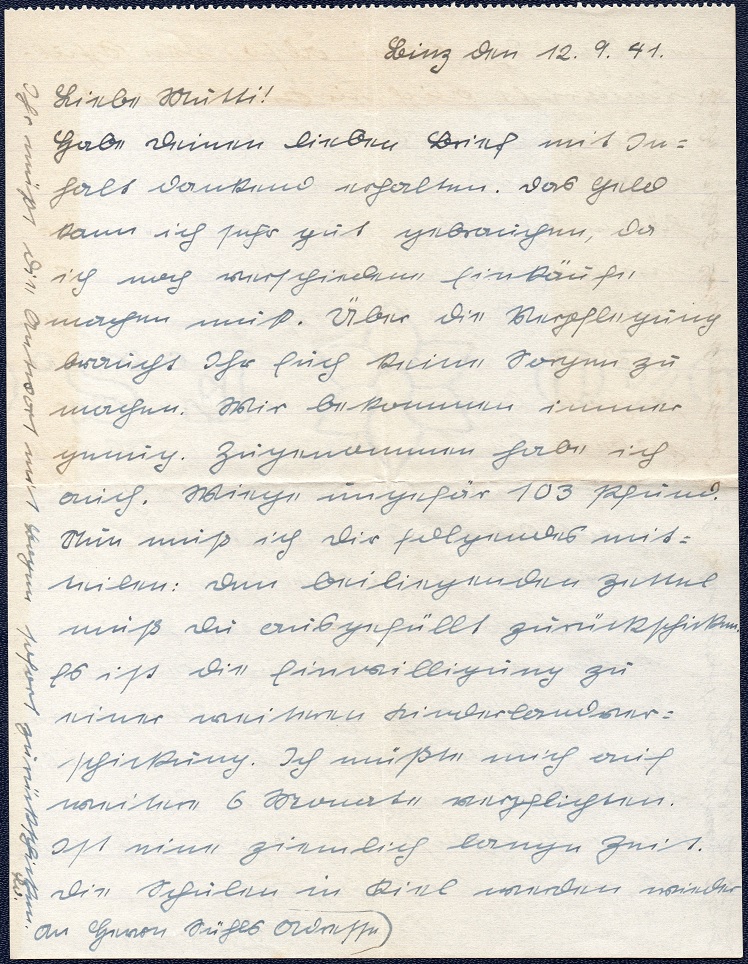 Linz den 12. 9. 41.
Liebe Mutti!
Habe deinen lieben Brief mit In=
halt dankend erhalten. Das Geld
kann ich sehr gut gebrauchen, da
ich noch verschiedene Einkäufe
machen muß. Über die Verpflegung
braucht Ihr Euch keine Sorgen zu
machen. Wir bekommen immer
genug. Zugenommen habe ich
auch. Wiege ungefär 103 Pfund.
Nun muß ich Dir folgendes mit=
teilen: den beiliegenden Zettel
mußt du ausgefüllt zurückschicken.
Es ist die Einwilligung zu
einer weiteren Kinderlandver=
schickung. Ich müßte mich auf
weitere 6 Monate verpflichten.
Ist eine ziemlich lange Zeit.
Die Schulen in Kiel werden wieder
Ihr müßt die Antwort wegen sofort zurückschicken.
An Herrn Adresse)